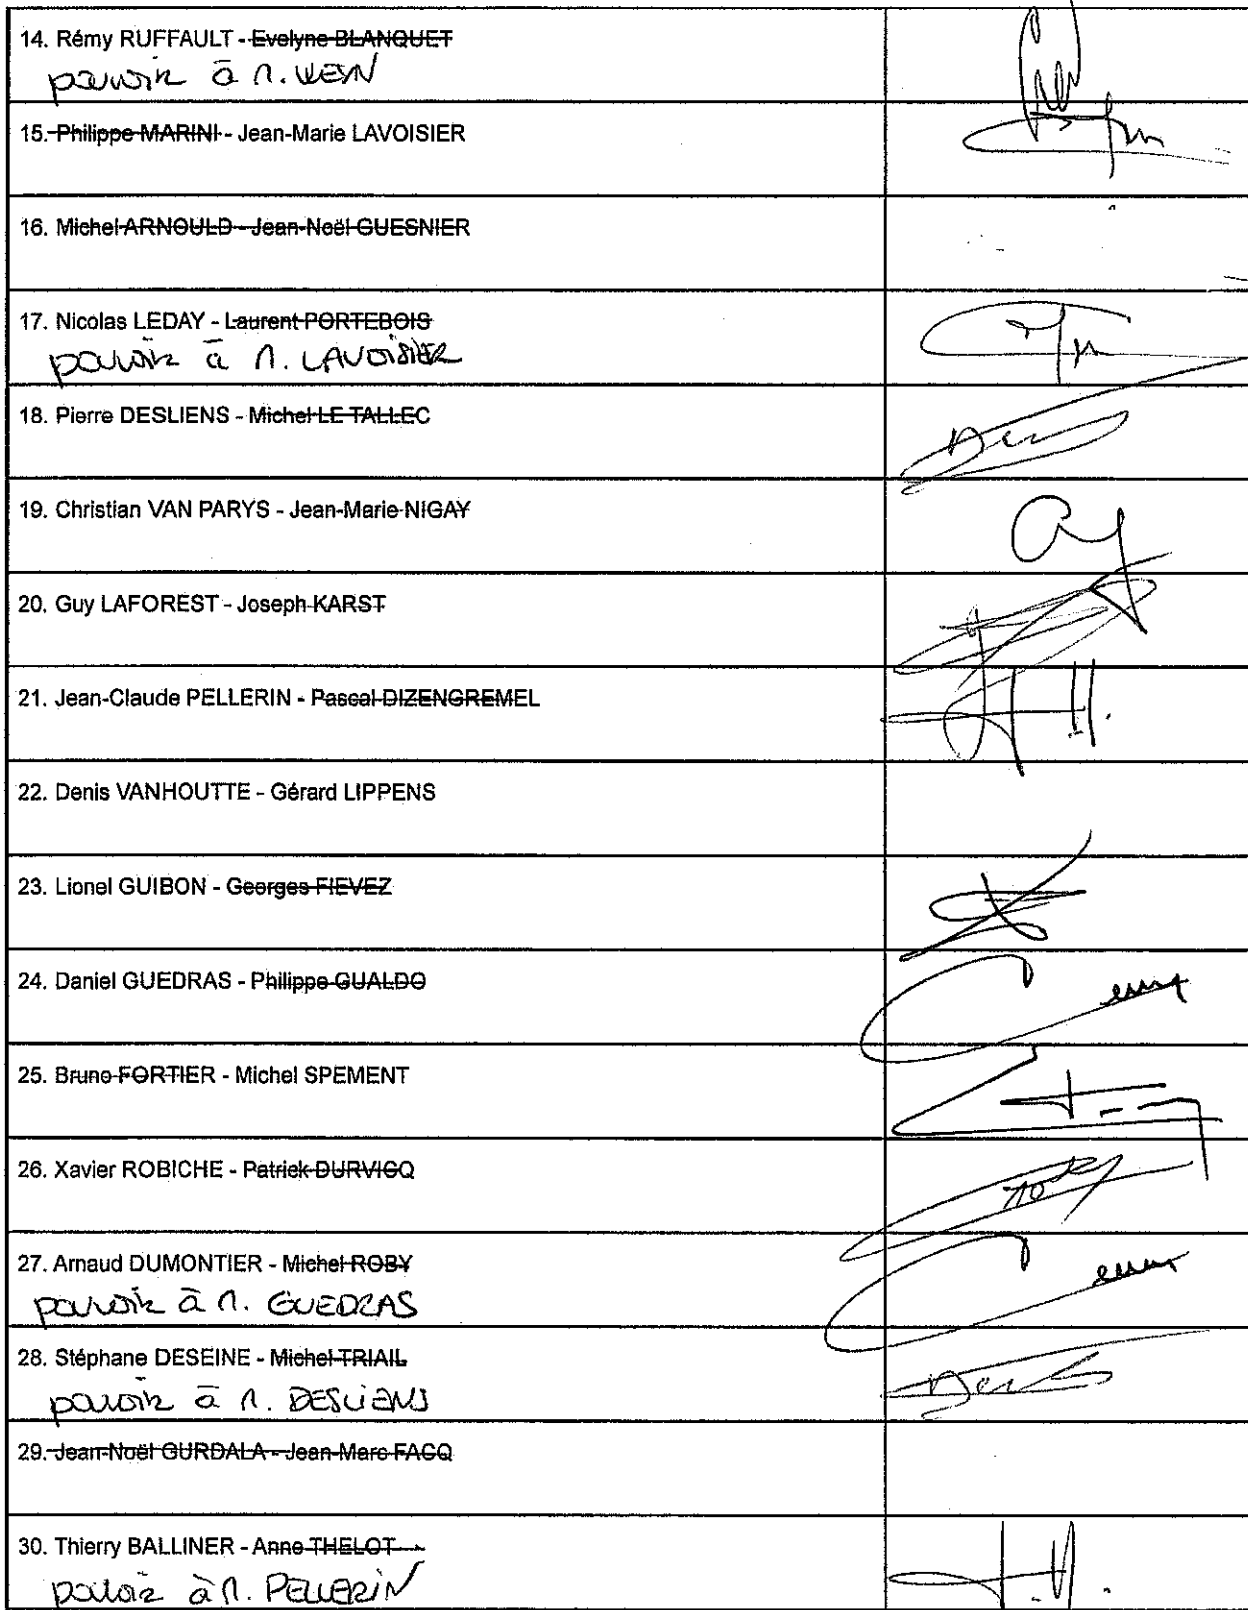 14. Rémy RUFFAULT - Evelyne BLANQUET
pouvoir à M.
15. Philippe MARINI - Jean-Marie LAVOISIER
16. Michel ARNOULD - Jean-Noël GUESNIER
17. Nicolas LEDAY - Laurent PORTEBOIS
pouvoir à M. LAVOISIER
18. Pierre DESLIENS - Michel LE TALLEC
19. Christian VAN PARYS - Jean-Marie NIGAY
20. Guy LAFOREST - Joseph KARST
21. Jean-Claude PELLERIN - Pascal DIZENGREMEL
22. Denis VANHOUTTE - Gérard LIPPENS
23. Lionel GUIBON - Georges FIEVEZ
24. Daniel GUEDRAS - Philippe GUALDO
25. Bruno FORTIER - Michel SPEMENT
26. Xavier ROBICHE - Patrick DURVICQ
27. Arnaud DUMONTIER - Michel ROBY
pouvoir à M. GUEDRAS
28. Stéphane DESEINE - Michel TRIAIL
pouvoir à M. DESLIENS
29. Jean-Noël GURDALA - Jean-Marc FACQ
30. Thierry BALLINER - Anne THELOT
pouvoir à M. PELLERIN